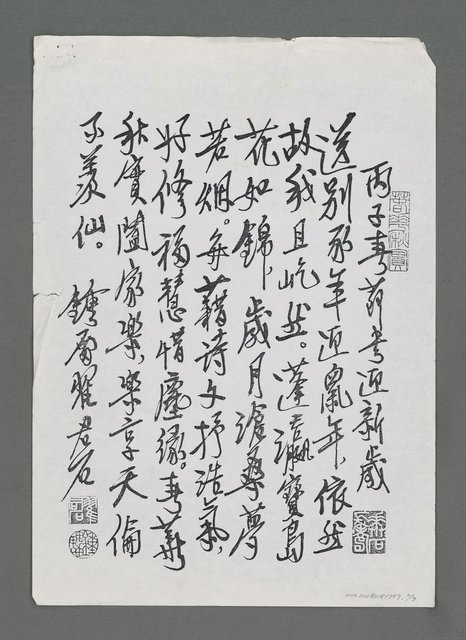 丙子春節書迎新歲
送別豕年迎鼠年，依然
故我且屹然。蓬瀛寶島
花如錦，歲月滄桑夢
若烟。每藉詩文抒浩氣，
好修福慧惜塵緣。春華
秋實闔家樂，樂享天倫
不羨仙。
翟君石
春華秋實